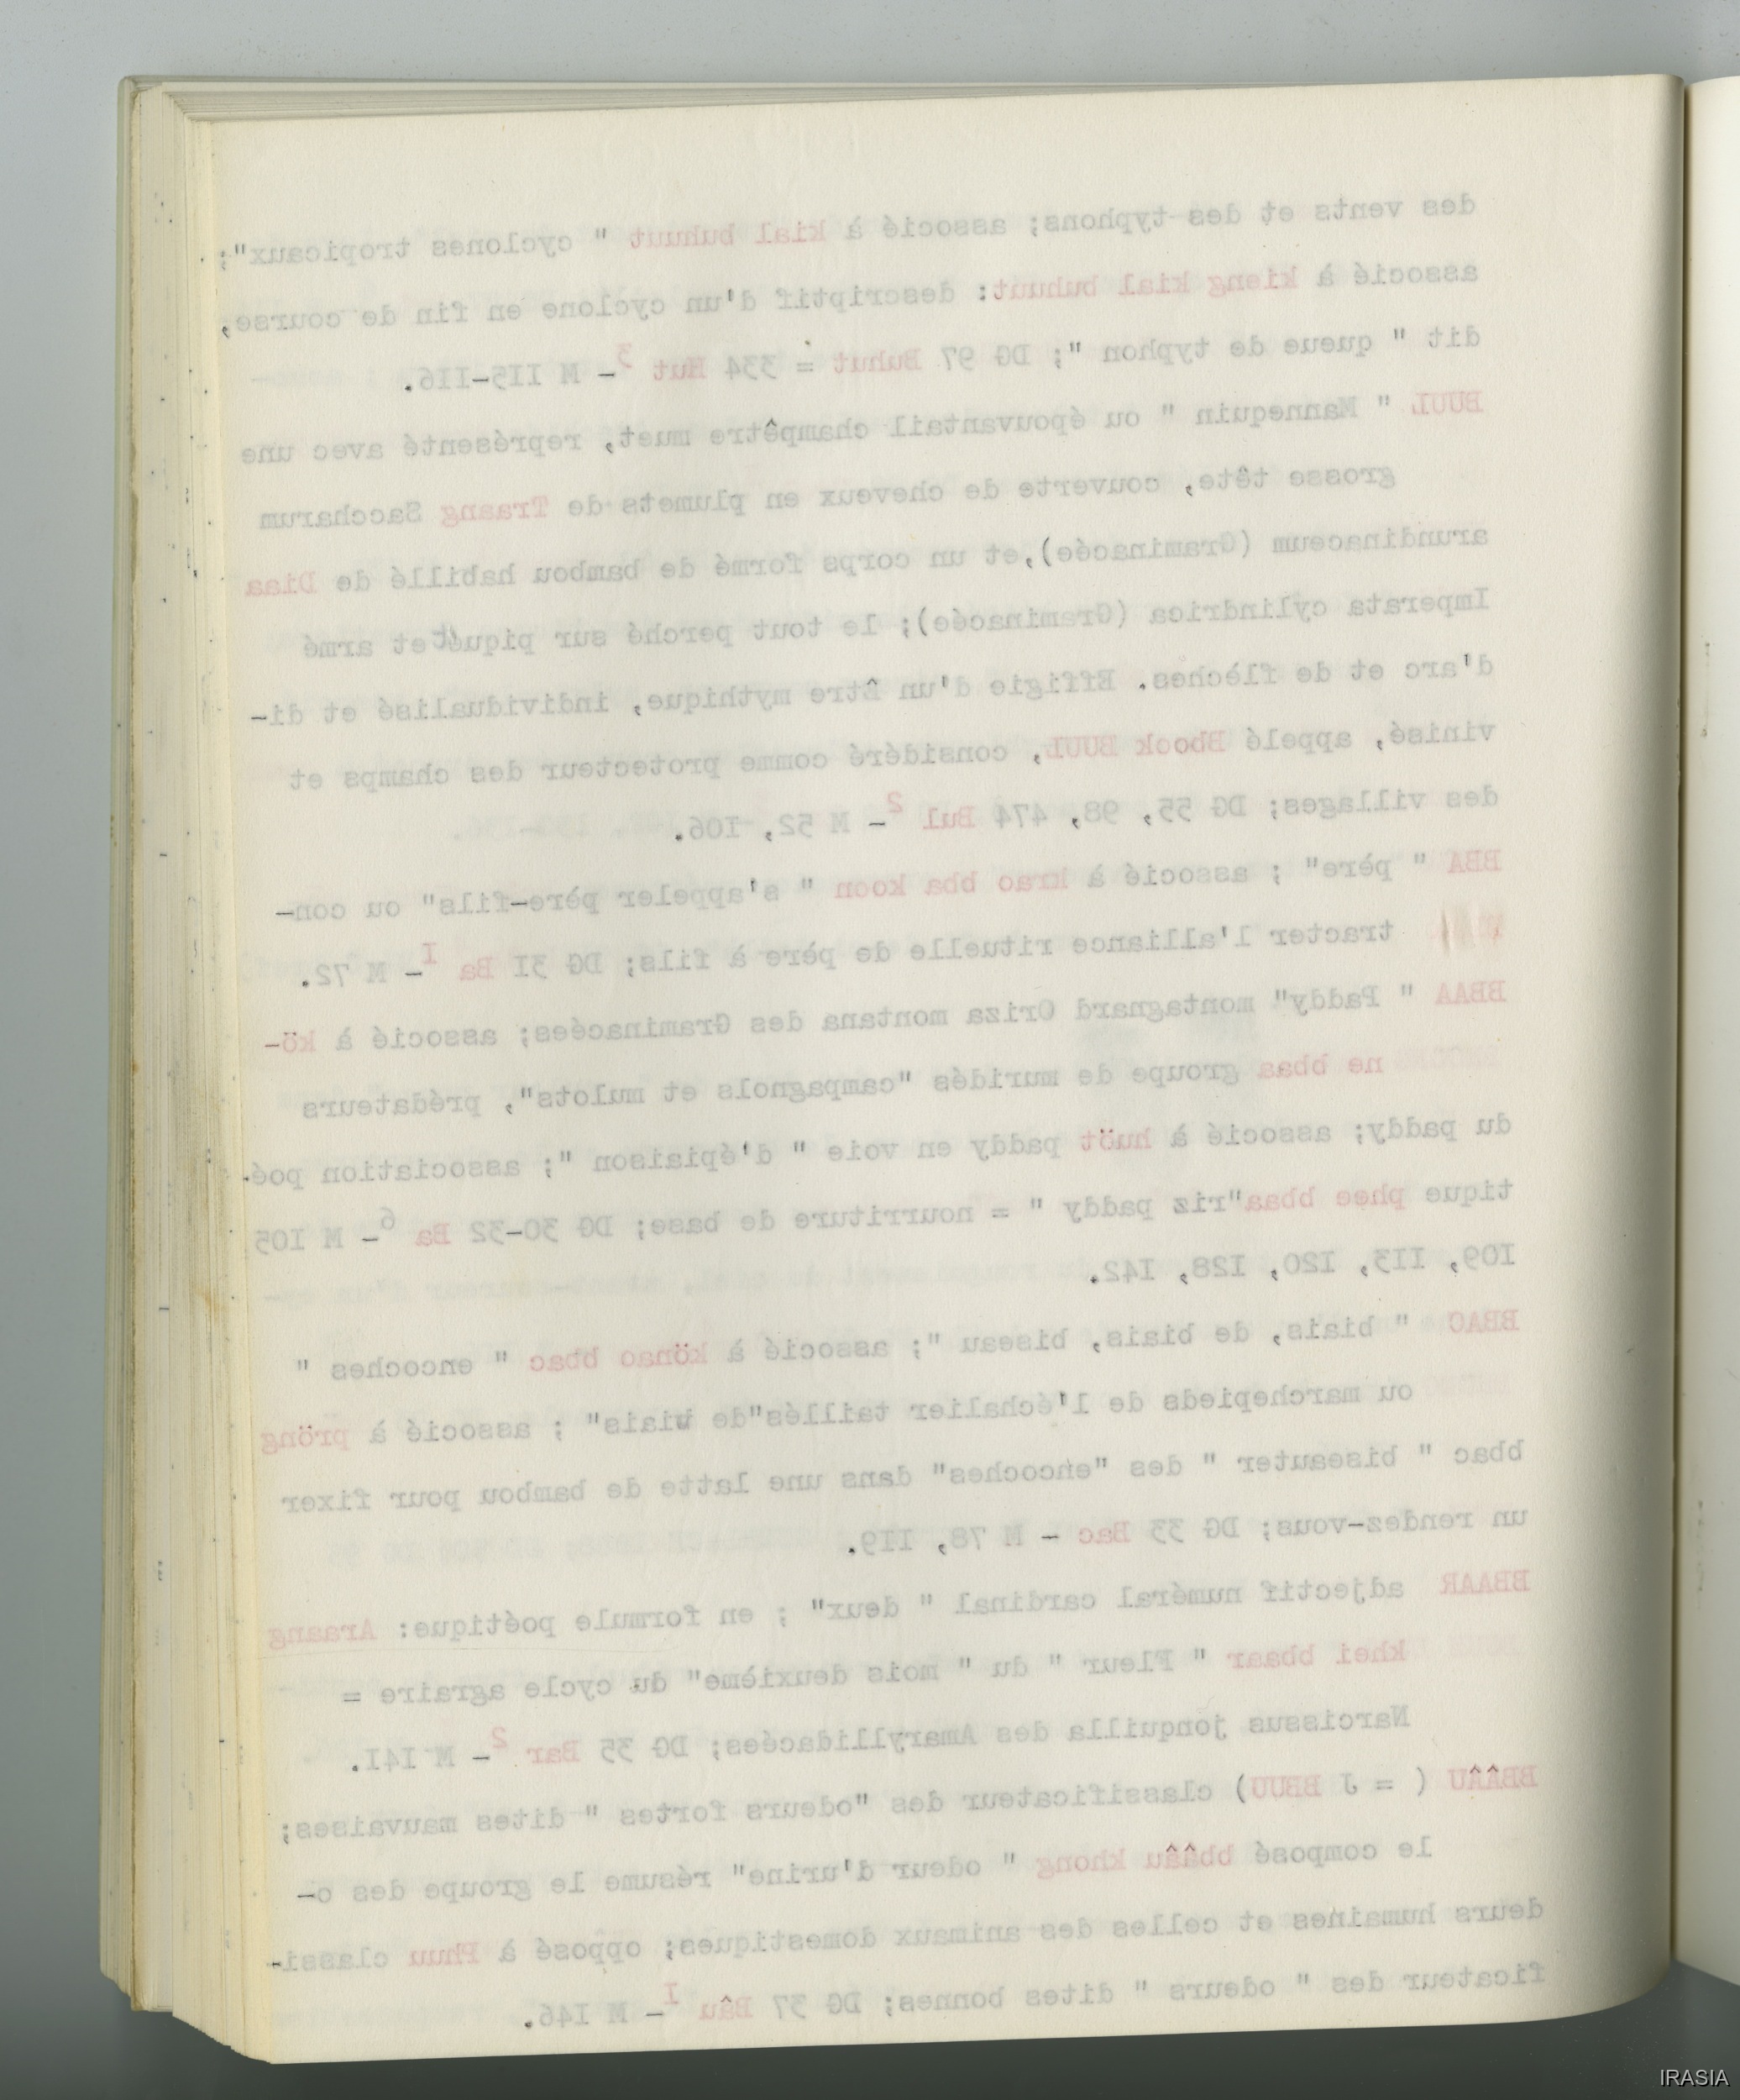 des vents et des typhons; associé à kial buhuut " cyclones tropicaux";
associé à kieng kial buhuut: descriptif d'un cyclone en fin de course,
dit " queue de typhon "; DG 97 Buhut = 334 Hut 3 - M II5-II6.
BUUL " Mannequin " ou épouvantail champêtre muet, représenté avec une
grosse tête, couverte de cheveux en plumets de Traang Saccharum
arundinaceum (Graminacée),et un corps formé de bambou habillé de Diaa
Imperata cylindrica (Graminacée); le tout perché sur piquet et armé
d'arc et de flèches. Effigie d'un Être mythique, individualisé et di-
vinisé, appelé Bbook BUUL, considéré comme protecteur des champs et
des villages; DG 55, 98, 474 Bul 2 - M 52, I06.
BBA " père" ; associé à krao bba koon " s'appeler père-fils" ou con-
tracter l'alliance rituelle de père à fils; DG 3I Ba I - M 72.
BBAA " Paddy" montagnard Oriza montana des Graminacées; associé à kö-
ne bbaa groupe de muridés "campagnols et mulots", prédateurs
du paddy; associé à huöt paddy en voie " d'épiaison "; association poé-
tique phee bbaa"riz paddy " = nourriture de base; DG 30-32 Ba 6 - M I05
I09, II3, I20, I28, I42.
BBAC " biais, de biais, biseau "; associé à könac bbac " encoches "
ou marchepieds de l'échalier taillés"de biais" ; associé à pröng
bbac " biseauter " des "encoches" dans une latte de bambou pour fixer
un rendez-vous; DG 33 Bac - M 78, II9.
BBAAR adjectif numéral cardinal " deux" ; en formule poétique: Araang
khei bbaar " Fleur " du " mois deuxième" du cycle agraire =
Narcissus jonquilla des Amaryllidacées; DG 35 Bar 2 - M I4I.
BBÂÂU ( = J BBUU) classificateur des "odeurs fortes " dites mauvaises;
le composé bbââu khong " odeur d'urine" résume le groupe des o-
deurs humaines et celles des animaux domestiques; opposé à Phuu classi-
ficateur des " odeurs " dites bonnes; DG 37 Bâu I - M I46.
IRASIA